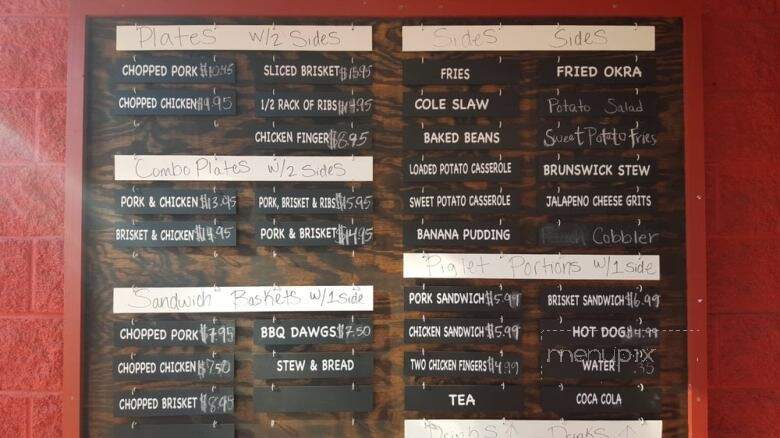 Plates w/2 Sides
CHOPPED PORK $10.45
SLICED BRISKET $15.95
CHOPPED CHICKEN $9.95
1/2 RACK OF RIBS $14.95
CHICKEN FINGER $8.95
Combo Plates w/2 Sides
PORK & CHICKEN $13.95
PORK, BRISKET & RIBS $15.95
BRISKET & CHICKEN $14.95
PORK & BRISKET $14.95
Sandwich Baskets w/1 side
CHOPPED PORK $7.95
BBQ DAWGS $7.50
CHOPPED CHICKEN $7.50
STEW & BREAD
CHOPPED BRISKET $8.95
Sides Sides
FRIES
FRIED OKRA
COLE SLAW
Potato Salad
BAKED BEANS
Sweet Potato Fries
LOADED POTATO CASSEROLE
BRUNSWICK STEW
SWEET POTATO CASSEROLE
JALAPENO CHEESE GRITS
BANANA PUDDING
Cobbler
Piglet Portions w/1 side
PORK SANDWICH $5.99
BRISKET SANDWICH $6.99
CHICKEN SANDWICH $5.99
HOT DOG $4.99
TWO CHICKEN FINGERS $4.99
WATER .35
menupix
TEA
COCA COLA
Drinks Drinks